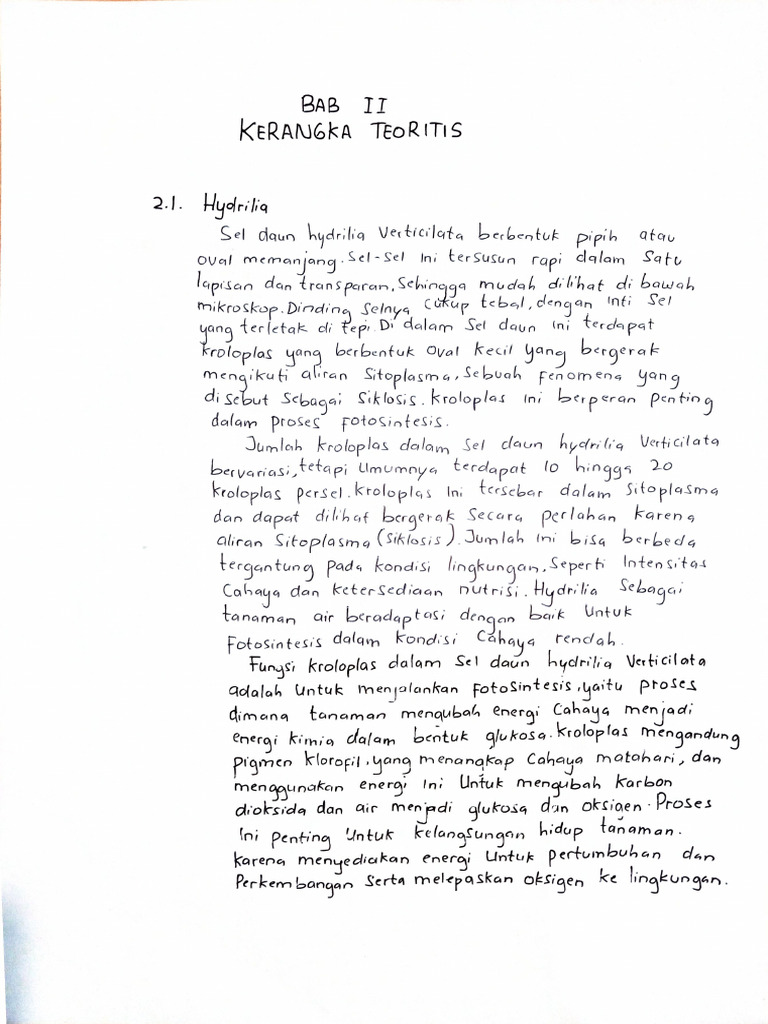 BAB II
KERANGKA TEORITIS
2.1. Hydrilia
Sel daun hydrilia Verticilata berbentuk pipih atau
oval memanjang. Sel-sel Ini tersusun rapi dalam Satu
lapisan dan transparan, Sehingga mudah dilihat di bawah
mikroskop. Dinding Selnya Cukup tebal, dengan Inti Sel
yang terletak di tepi. Di dalam Sel daun Ini terdapat
kroloplas yang berbentuk Oval kecil yang bergerak
mengikuti aliran Sitoplasma, Sebuah fenomena yang
di sebut Sebagai Siklosis. Kroloplas Ini berperan penting
dalam proses fotosintesis.
Jumlah kroloplas dalam Sel daun hydrilia Verticilata
bervariasi, tetapi Umumnya terdapat 10 hingga 20
kroloplas persel. Kroloplas Ini tersebar dalam Sitoplasma
dan dapat dilihat bergerak Secara perlahan karena
aliran Sitoplasma (Siklosis). Jumlah Ini bisa berbeda
tergantung pada kondisi lingkungan, Seperti Intensitas
Cahaya dan ketersediaan nutrisi. Hydrilia Sebagai
tanaman air beradaptasi dengan baik Untuk
Fotosintesis dalam kondisi Cahaya rendah.
Fungsi kroloplas dalam Sel daun hydrilia Verticilata
adalah Untuk menjalankan fotosintesis, yaitu proses
dimana tanaman mengubah energi Cahaya menjadi
energi kimia dalam bentuk glukosa. Kroloplas mengandung
pigmen klorofil, yang menangkap Cahaya matahari, dan
menggunakan energi Ini Untuk mengubah karbon
dioksida dan air menjadi glukosa dan oksigen. Proses
Ini penting Untuk kelangsungan hidup tanaman.
karena menyediakan energi Untuk pertumbuhan dan
Perkembangan Serta melepaskan oksigen ke lingkungan.